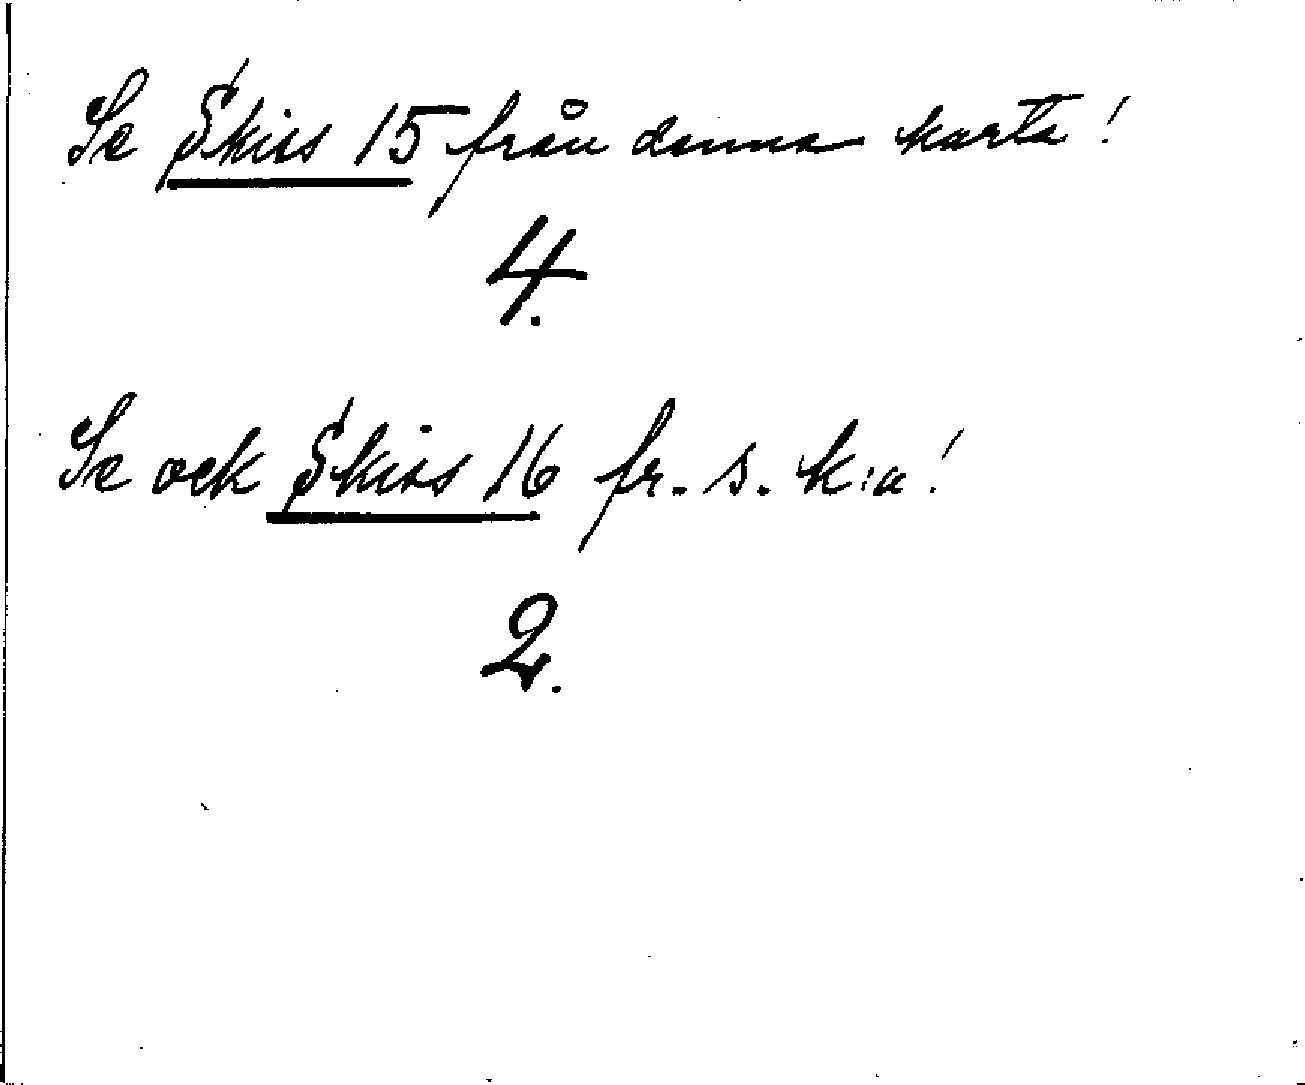 Se Skiss 15 från denna karta!
4.
Se ock Skiss 16 fr. s. k:a!
2.